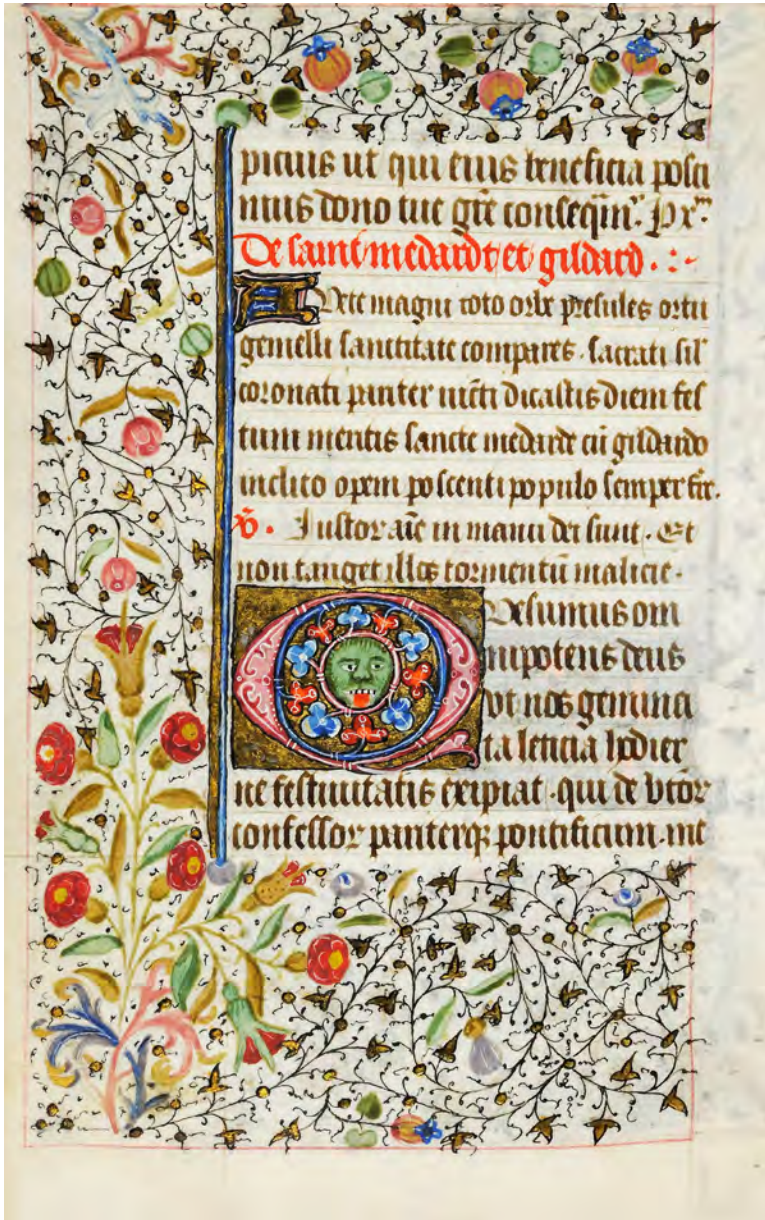 picius ut qui eius beneficia posci
mus dono tue grē consequm̄r. Px̄
De saint medardt et gildard
Avete magni toto orbe presules ortu
gemelli sanctitate compares. sacrati sil̄
coronati pariter dicastis diem fes
tum mentis sancte medarde cū gildardo
inclito opem poscenti populo semper
v̄. Iustor aīe in manu dei sunt. Et
non tanget illos tormentū malicie.
Quesumus om
nipotens deus
vt nos gemina
ta leticia hodier
ne festiuitatis exipiat. qui de vtor
confessor pariterqꝫ pontificium. me